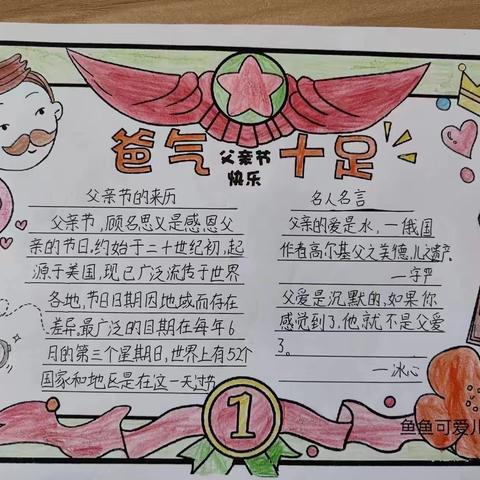 爸气十足
父亲节
快乐
父亲节的来历
父亲节,顾名思义是感恩父
亲的节日,约始于二十世纪初,起
源于美国,现已广泛流传于世界
各地,节日日期因地域而存在
差异,最广泛的日期在每年6
月的第三个星期日,世界上有52个
国家和地区是在这一天过节
名人名言
父亲的爱是水,一俄国
作者高尔基父之美德,儿之遗产
一守严
父爱是沉默的,如果你
感觉到了,他就不是父爱
了。
一冰心
1
鱼鱼可爱儿